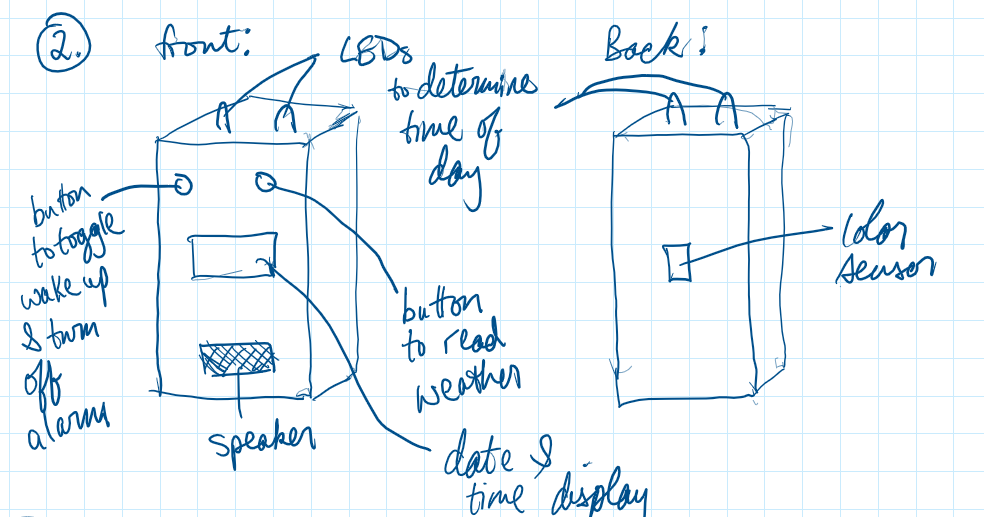 2.
front:
LEDs
to determines
time of
day
Back:
button
to toggle
wake up
& turn
off
alarm
button
to read
weather
speaker
date &
time display
Color
sensor